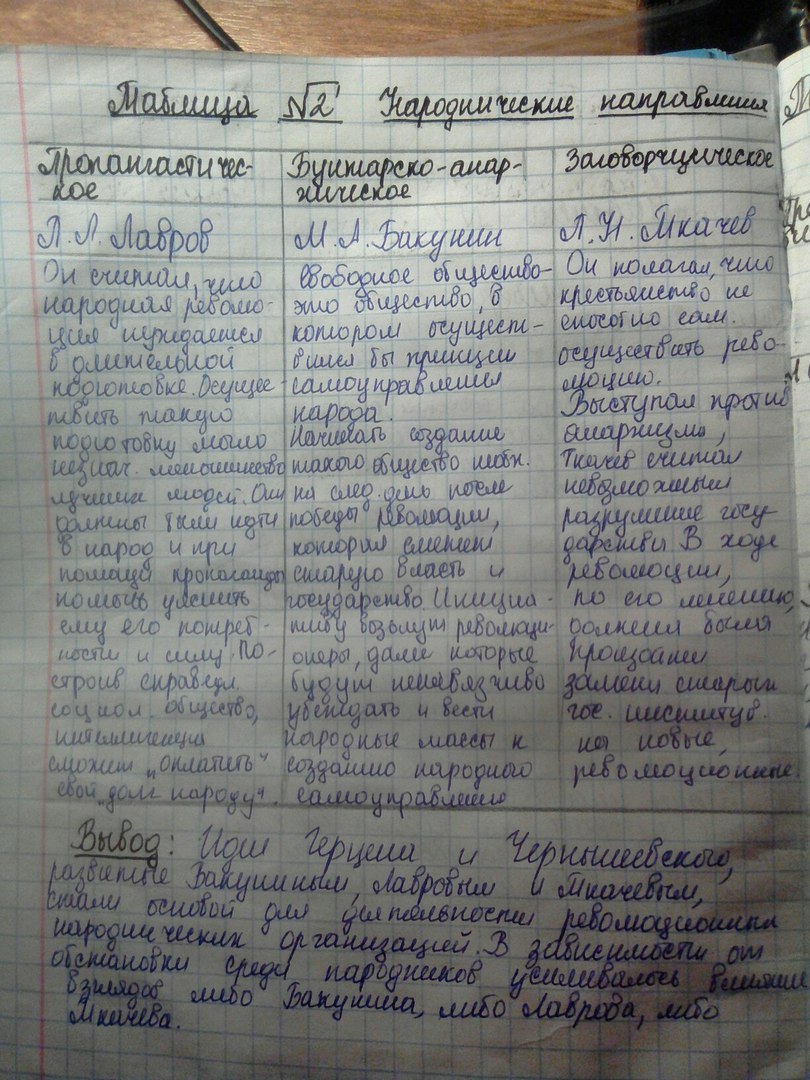 Таблица №2 Народнические направления
Пропангастичес-
кое
П. Л. Лавров
Он считал, что
народная револю-
ция нуждается
в длительной
подготовке. Осуще-
твить такую
подготовку могло
незнач. меньшинство
лучших людей. Они
должны были идти
в народ и при
помощи пропаганды
помочь уяснить
ему его потреб-
ности и силу. По-
строив справедл.
социал. общество,
интеллигенция
сможет "оплатить"
свой "долг народу".
Бунтарско-анар-
хическое
М. А. Бакунин
Свободное общество-
это общество, в
котором осущест-
вился бы принцип
самоуправления
народа.
Начинать создание
такого общество необх.
на след. день после
победы революции,
которая сметет
старую власть и
государство. Инициа-
тиву возьмут революци-
онеры, далее которые
будут ненавязчиво
убеждать и вести
народные массы к
созданию народного
самоуправления
Заговорщическое
П. Н. Ткачев
Он полагал, что
крестьянство не
способно сам.
осуществить рево-
люцию.
Выступал против
анархизма,
Ткачев считал
невозможным
разрушение госу-
дарства. В ходе
революции,
по его мнению,
должна была
произойти
замена старых
гос. институтов.
на новые,
революционные.
Вывод: Идеи Герцена и Чернышевского,
развитые Бакуниным, Лавровым и Ткачевым,
стали основой для деятельности революционных
народнических организацией. В зависимости от
обстановки среди народников усиливалось влияние
взглядов либо Бакунина, либо Лаврова, либо
Ткачева.